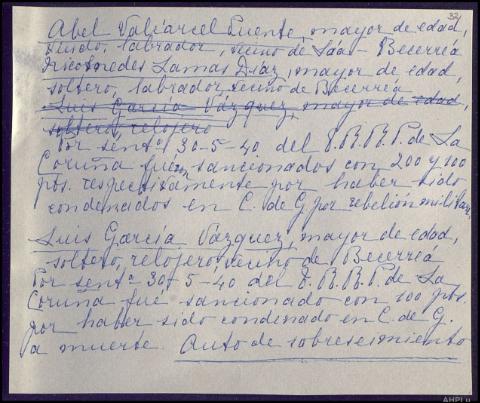 32
Abel Valcarcel Fuente, mayor de edad,
viudo, labrador, vecino de Saa - Becerreá
Nicomedes Lamas Díaz, mayor de edad,
soltero, labrador, vecino de Becerreá
Luis García Vázquez, mayor de edad,
soltero, relojero
Por sentª 30-5-40 del T.R.R.P. de La
Coruña fueron sancionados con 200 y 100
pts. respectivamente por haber sido
condenados en C. de G. por rebelión militar.
Luis García Vázquez, mayor de edad,
soltero, relojero, vecino de Becerreá
Por sentª 30-5-40 del T.R.R.P. de La
Coruña fue sancionado con 100 pts.
por haber sido condenado en C. de G.
a muerte. Auto de sobreseimiento
AHPLu